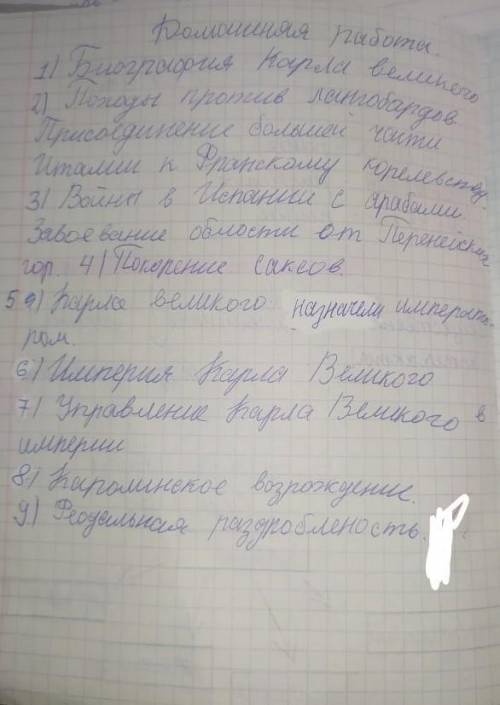 Домашняя работа.
1) Биография Карла великого
2) Походы против лангобардов
Присоединение большей части
Италии к Франскому королевству.
3) Войны в Испании с арабами.
Завоевание области от Перенейских
гор. 4) Покорение саксов.
5 а) Карла великого назначели императо-
ром.
6) Империя Карла Великого
7) Управление Карла Великого в
империи
8) Каролинское возрождение.
9) Феодальная раздробленость.